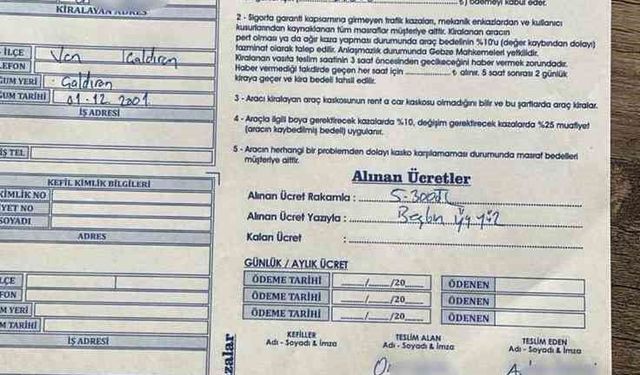 KİRALAYAN ADRES
İLÇE Van Çaldıran
TELEFON
ĞUM YERİ : Çaldıran
ĞUM TARİHİ 01.12.2001
İŞ ADRESİ
İŞ TEL
KEFİL KİMLİK BİLGİLERİ
KİMLİK NO
YET NO
SOYADI
ADRES
LÇE
FON
M YERİ
M TARİHİ
İŞ ADRESİ
ödemeyi kabul eder.
2 - Sigorta garanti kapsamına girmeyen trafik kazaları, mekanik enkazlardan ve kullanıcı
kusurlarından kaynaklanan tüm masraflar müşteriye aittir. Kiralanan aracın
pert olması ya da ağır kaza yapması durumunda araç bedelinin %10'u (değer kaybından dolayı)
tazminat olarak talep edilir. Anlaşmazlık durumunda Gebze Mahkemeleri yetkilidir.
Kiralanan vasıta teslim saatinin 3 saat öncesinden gecikeceğini haber vermek zorundadır.
Haber vermediği takdirde geçen her saat için ........ ₺ alınır, 5 saat sonrası 2 günlük
kiraya geçer ve kira bedeli tahsil edilir.
3 - Aracı kiralayan araç kaskosunun rent a car kaskosu olmadığını bilir ve bu şartlarda araç kiralar.
4 - Araçla ilgili boya gerektirecek kazalarda %10, değişim gerektirecek kazalarda %25 muafiyet
(aracın kaybedilmiş bedeli) uygulanır.
5 - Aracın herhangi bir problemden dolayı kasko karşılamaması durumunda masraf bedelleri
müşteriye aittir.
Alınan Ücretler
Alınan Ücret Rakamla : 5.300TL
Alınan Ücret Yazıyla : Beşbin Üç yüz
Kalan Ücret :
GÜNLÜK / AYLIK ÜCRET
ÖDEME TARİHİ ....../....../20...... ÖDENEN
ÖDEME TARİHİ ....../....../20...... ÖDENEN
ÖDEME TARİHİ ....../....../20...... ÖDENEN
KEFİLLER TESLİM ALAN TESLİM EDEN
Adı - Soyadı & İmza Adı - Soyadı & İmza Adı - Soyadı & İmza